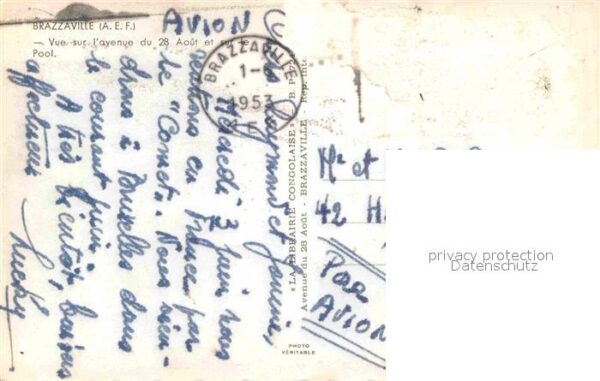 BRAZZAVILLE (A. E. F.)
— Vue sur l'avenue du 28 Août et sur le
Pool.
AVION
BRAZZAVILLE
1-6
1953
Raymond et Janine,
Mercredi 3 juin nous
partons en France par
le "Comet". Nous
dans à Bruxelles dans
le courant juin.
A très bientôt, baisers
affectueux
Lucky
« LA LIBRAIRIE CONGOLAISE » B. P.
Avenue du 28 Août - BRAZZAVILLE - Rep. Inte
PHOTO
VÉRITABLE
Mr et
42 H
Par
AVION
privacy protection
Datenschutz